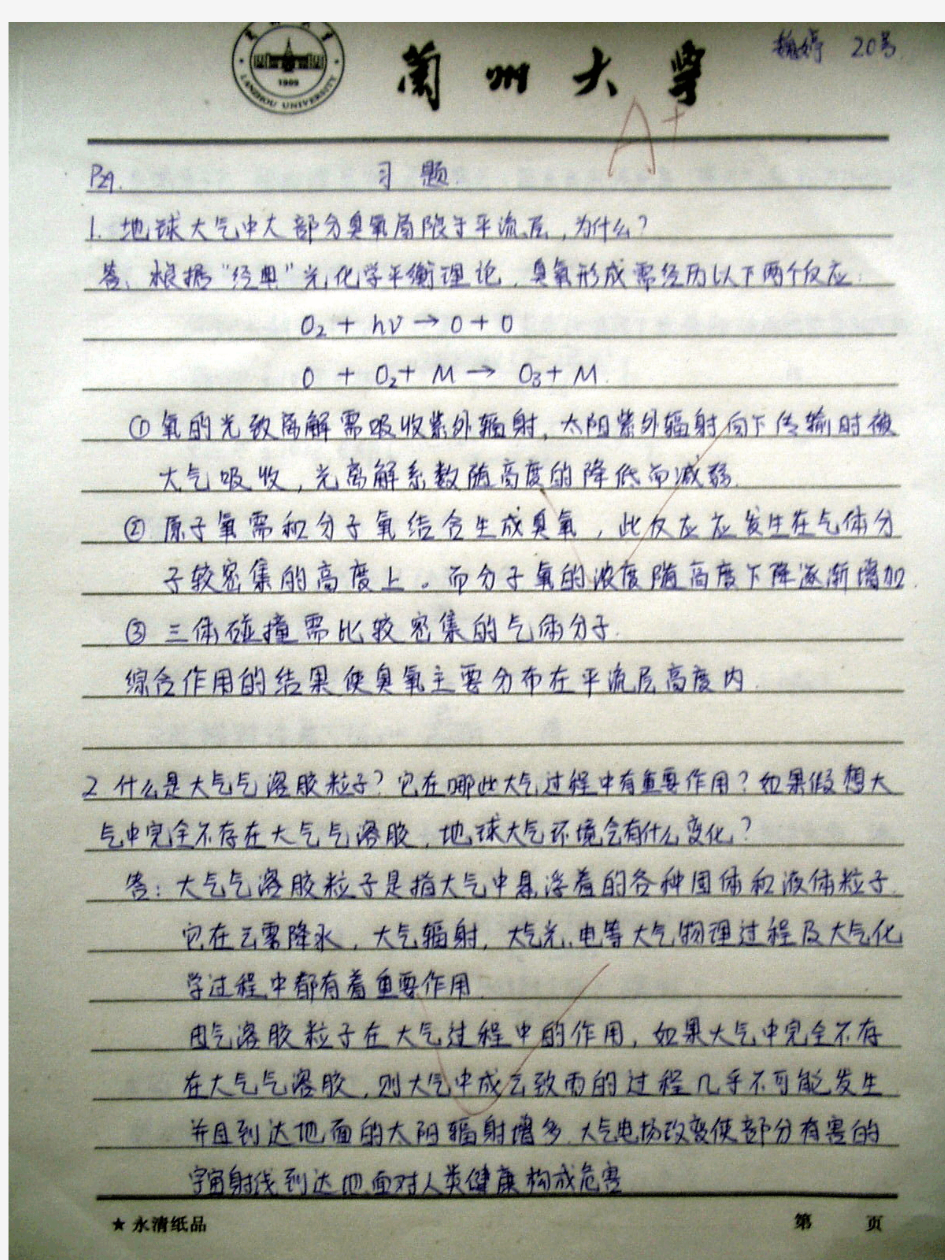 兰州大学
LANZHOU UNIVERSITY
1909
兰州大学
20号
A+
P29. 习题
1. 地球大气中大部分臭氧局限于平流层,为什么?
答、根据“经典”光化学平衡理论,臭氧形成需经历以下两个反应:
O₂ + hν → O + O
O + O₂ + M → O₃ + M.
① 氧的光致离解需吸收紫外辐射,太阳紫外辐射向下传输时被
大气吸收,光离解系数随高度的降低而减弱.
② 原子氧需和分子氧结合生成臭氧,此反应应发生在气体分
子较密集的高度上。而分子氧的浓度随高度下降逐渐增加.
③ 三体碰撞需比较密集的气体分子.
综合作用的结果使臭氧主要分布在平流层高度内.
2 什么是大气气溶胶粒子?它在哪些大气过程中有重要作用?如果假想大
气中完全不存在大气气溶胶,地球大气环境会有什么变化?
答:大气气溶胶粒子是指大气中悬浮着的各种固体和液体粒子.
它在云雾降水,大气辐射,大气光、电等大气物理过程及大气化
学过程中都有着重要作用.
因气溶胶粒子在大气过程中的作用,如果大气中完全不存
在大气气溶胶,则大气中成云致雨的过程几乎不可能发生
并且到达地面的太阳辐射增多.大气电场改变使部分有害的
宇宙射线到达地面对人类健康构成危害
★永清纸品 第 页